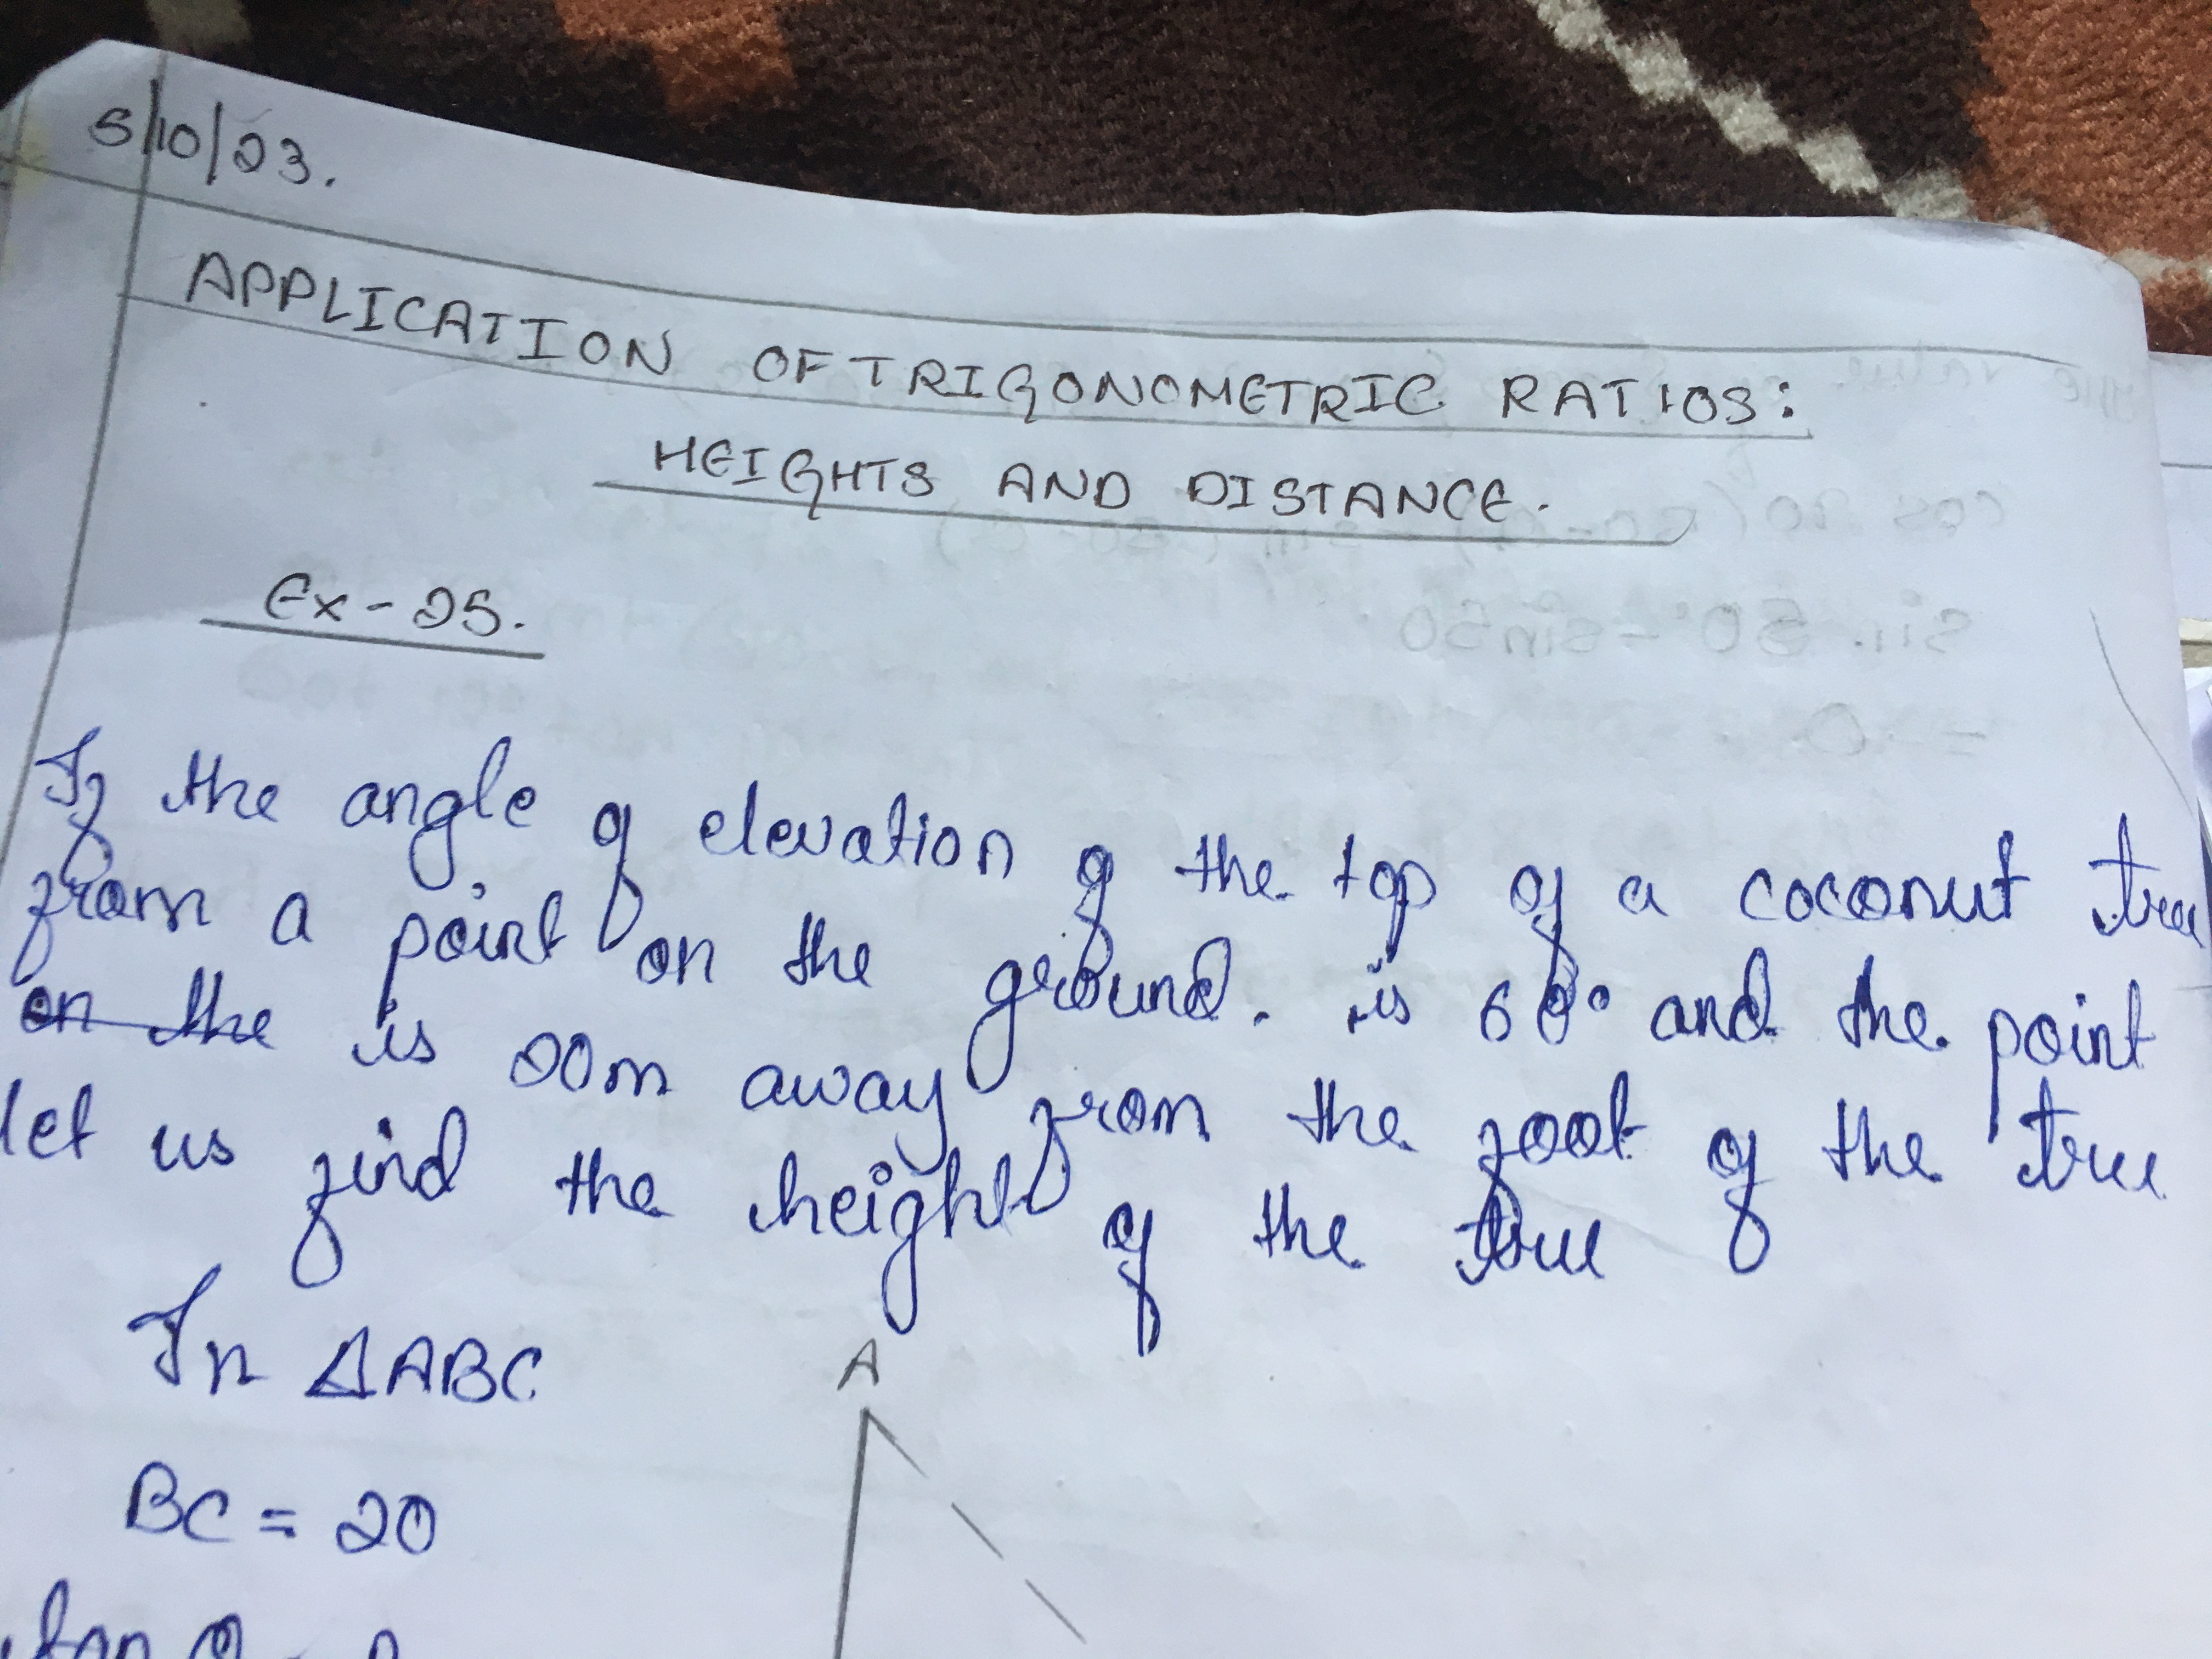 5/10/23.
APPLICATION OF TRIGONOMETRIC RATIOS:
HEIGHTS AND DISTANCE.
Ex - 25.
If the angle of elevation of the top of a coconut tree
from a point on the ground. is 60° and the point
on the is 20m away from the foot of the tree
let us find the height of the tree
In ΔABC
A
BC = 20